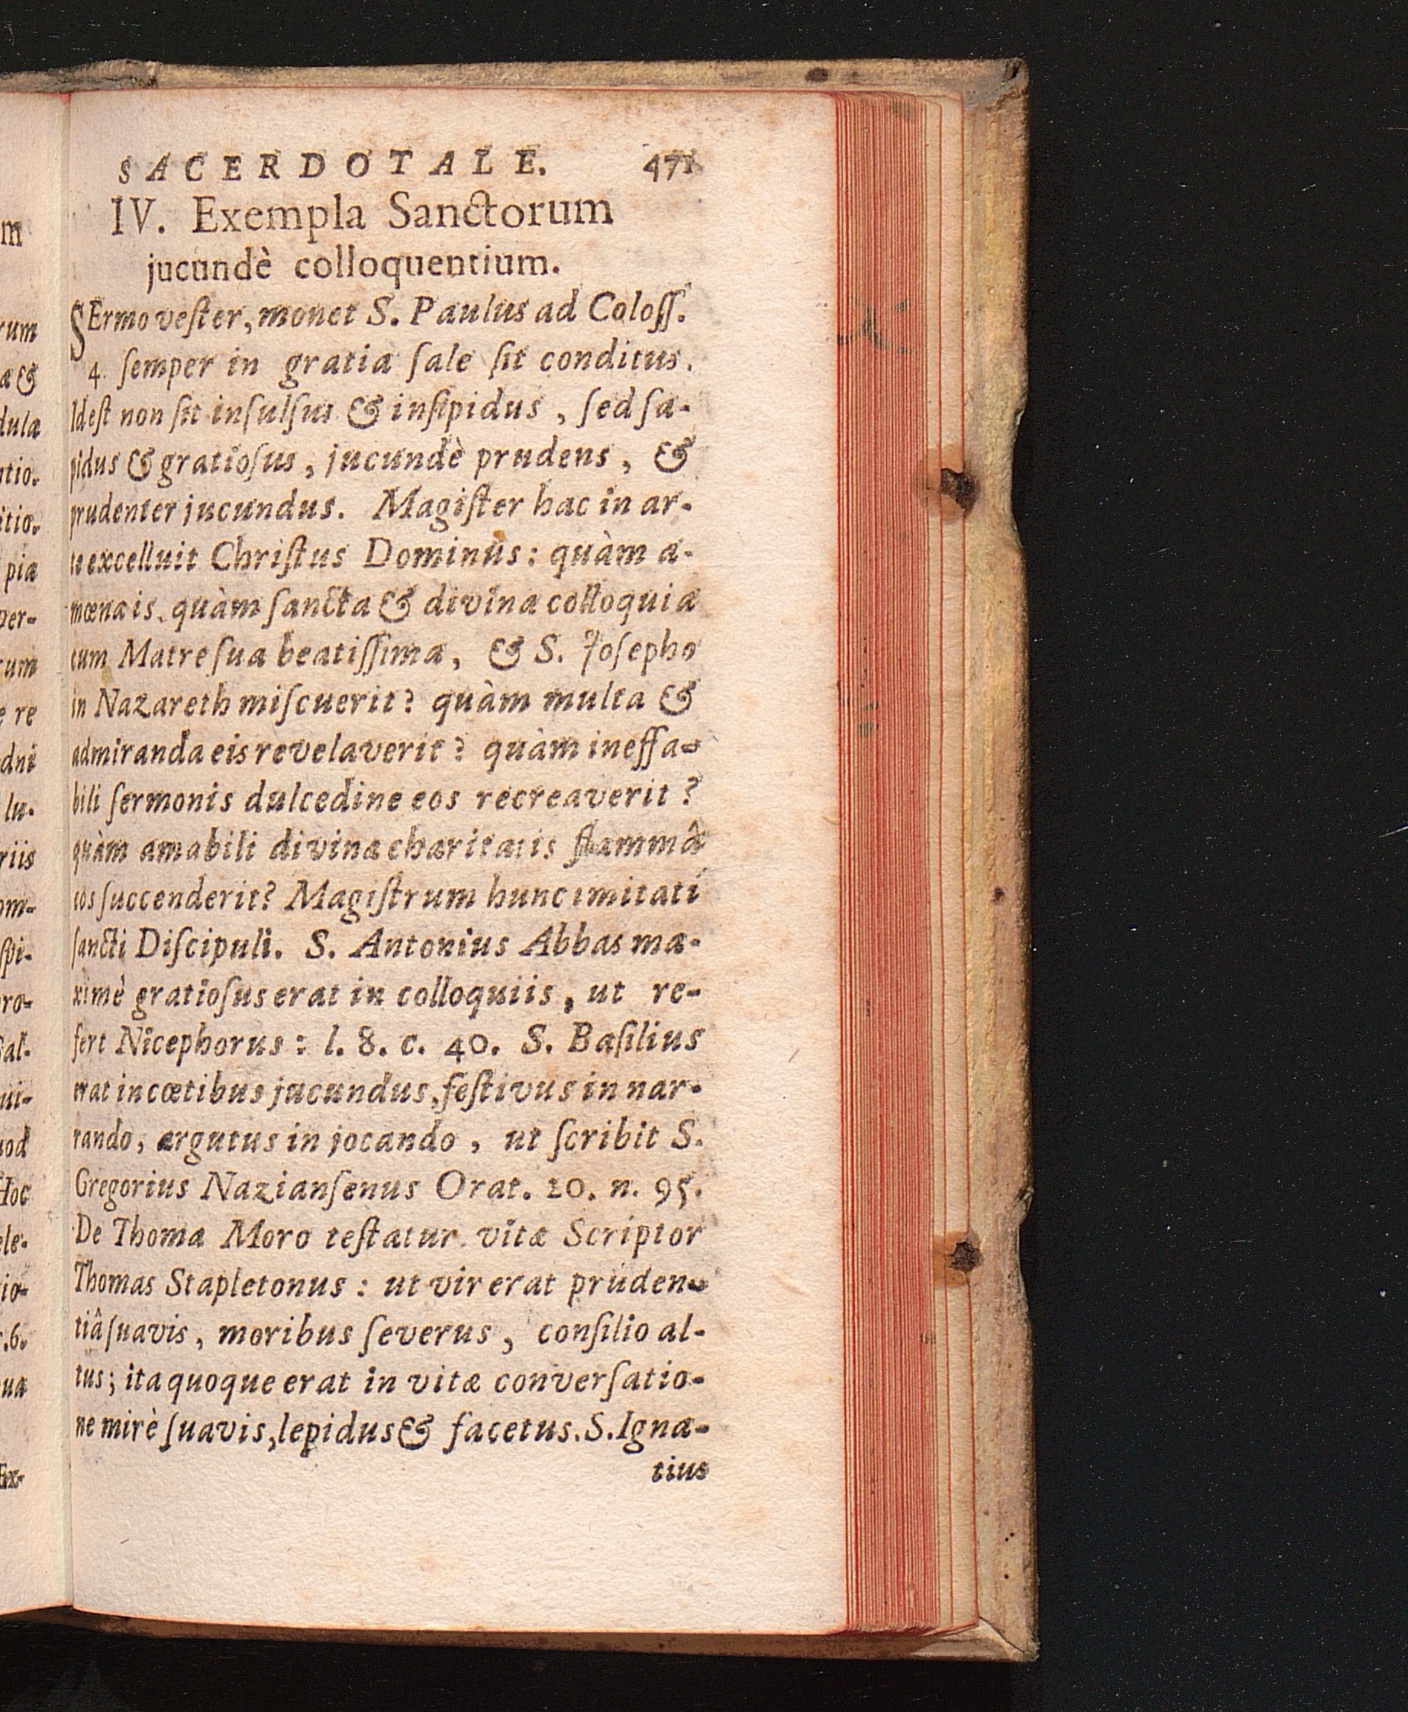 SACERDOTALE. 471
IV. Exempla Sanctorum
jucundè colloquentium.
SErmo veſter, monet S. Paulus ad Coloſſ.
4. ſemper in gratia ſale ſit conditus.
Ideſt non ſit inſulſus & inſipidus, ſed ſa-
pidus & gratioſus, jucundè prudens, &
prudenter jucundus. Magiſter hac in ar-
te excelluit Chriſtus Dominus: quàm a-
mœna is, quàm ſancta & divina colloquia
cum Matre ſua beatiſſima, & S. Joſepho
in Nazareth miſcuerit? quàm multa &
admiranda eis revelaverit? quàm ineffa-
bili ſermonis dulcedine eos recreaverit?
quàm amabili divinæ charitatis flammâ
eos ſuccenderit? Magiſtrum hunc imitati
ſancti Diſcipuli. S. Antonius Abbas ma-
ximè gratioſus erat in colloquiis, ut re-
fert Nicephorus: l. 8. c. 40. S. Baſilius
erat in cœtibus jucundus, feſtivus in nar-
rando, argutus in jocando, ut ſcribit S.
Gregorius Nazianſenus Orat. 20. n. 95.
De Thoma Moro teſtatur vitæ Scriptor
Thomas Stapletonus: ut vir erat pruden-
tiâ ſuavis, moribus ſeverus, conſilio al-
tus; ita quoque erat in vitæ converſatio-
ne mirè ſuavis, lepidus & facetus. S. Igna-
tius